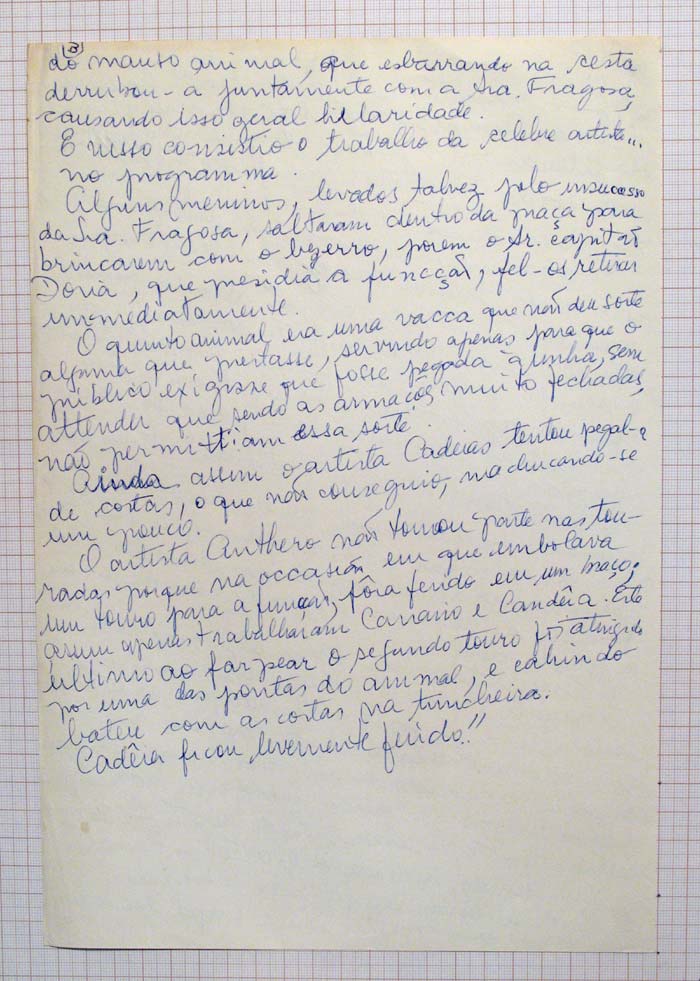 (3)
do manso animal, que esbarrando na cesta
derrubou-a juntamente com a Sra. Fragosa,
causando isso geral hilaridade.
E nisso consistio o trabalho da celebre artista...
no programma.
Alguns meninos, levados talvez pelo insucesso
da Sra. Fragosa, saltaram dentro da praça para
brincarem com o bezerro, porem o Sr. capitão
Doria, que presidia a funcção, fel-os retirar
immediatamente.
O quinto animal era uma vacca que não deu sorte
alguma que prestasse, servindo apenas para que o
publico exigisse que fosse pegada á unha, sem
attender que sendo as armações muito fechadas,
não permittiam essa sorte.
Ainda assim o artista Cadeias tentou pegal-a
de costas, o que não conseguio, machucando-se
um pouco.
O artista Anthero não tomou parte nas tou-
radas porque na occasião em que embolava
um touro para a funcção, fôra ferido em um braço;
assim apenas trabalharam Canario e Candêia. Este
ultimo ao farpear o segundo touro foi attingido
por uma das pontas do animal, e cahindo
bateu com as costas na trincheira.
Cadêia ficou levemente ferido!!